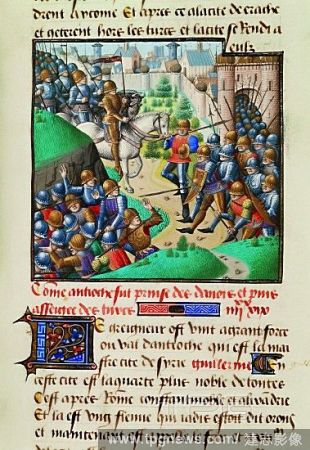 drent arcome Et apres ce alacite de crache
et geterent hors les turcs et la cite se Rendi a
eulx
Come antioche fut prinse des danois et puis
assiegee des turcs
E seigneur ost vint a grant force
ou val dantioche qui est la mai
stre cite de syrie guillerme
ceste cite est la quarte plus noble de toutes
C'est apres Rome constantinoble et alixadrie
Et la est ung fleuue qui iadis estoit dit orons
et maintenant est
www.tpgnews.com / 達志影像